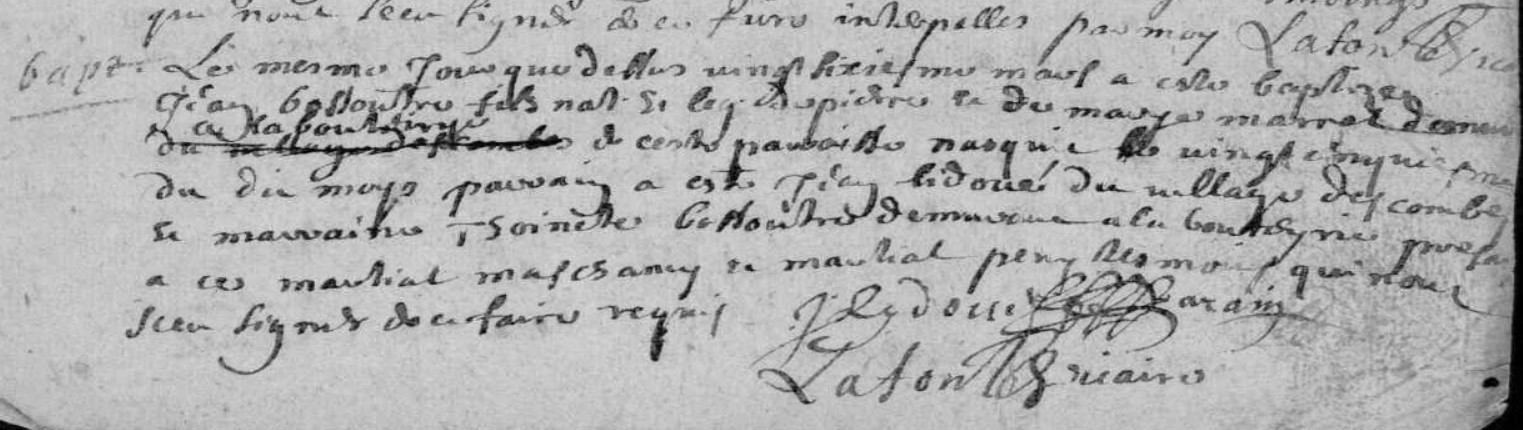 que nont sceu signer de ce faire interpelles par moy Lafont vicaire
bapt. Le mesme jour que dessus vingt sixiesme mars a este baptize
Jean bossoutre fils nat. et leg. de pierre et de marye marcel demeu
a la bouteyrie
du village des combes de ceste parroisse nasquit le vingt cinquiesme
du dit moys parrain a esté Jean lidoué du village des combes
et marraine Thoinete bossoutre demeurant a la bouteyrie presa
a ce martial maschamy et martial peny tesmoins qui nont
sceu signer de ce faire requis J Lydoué parain
Lafont vicaire